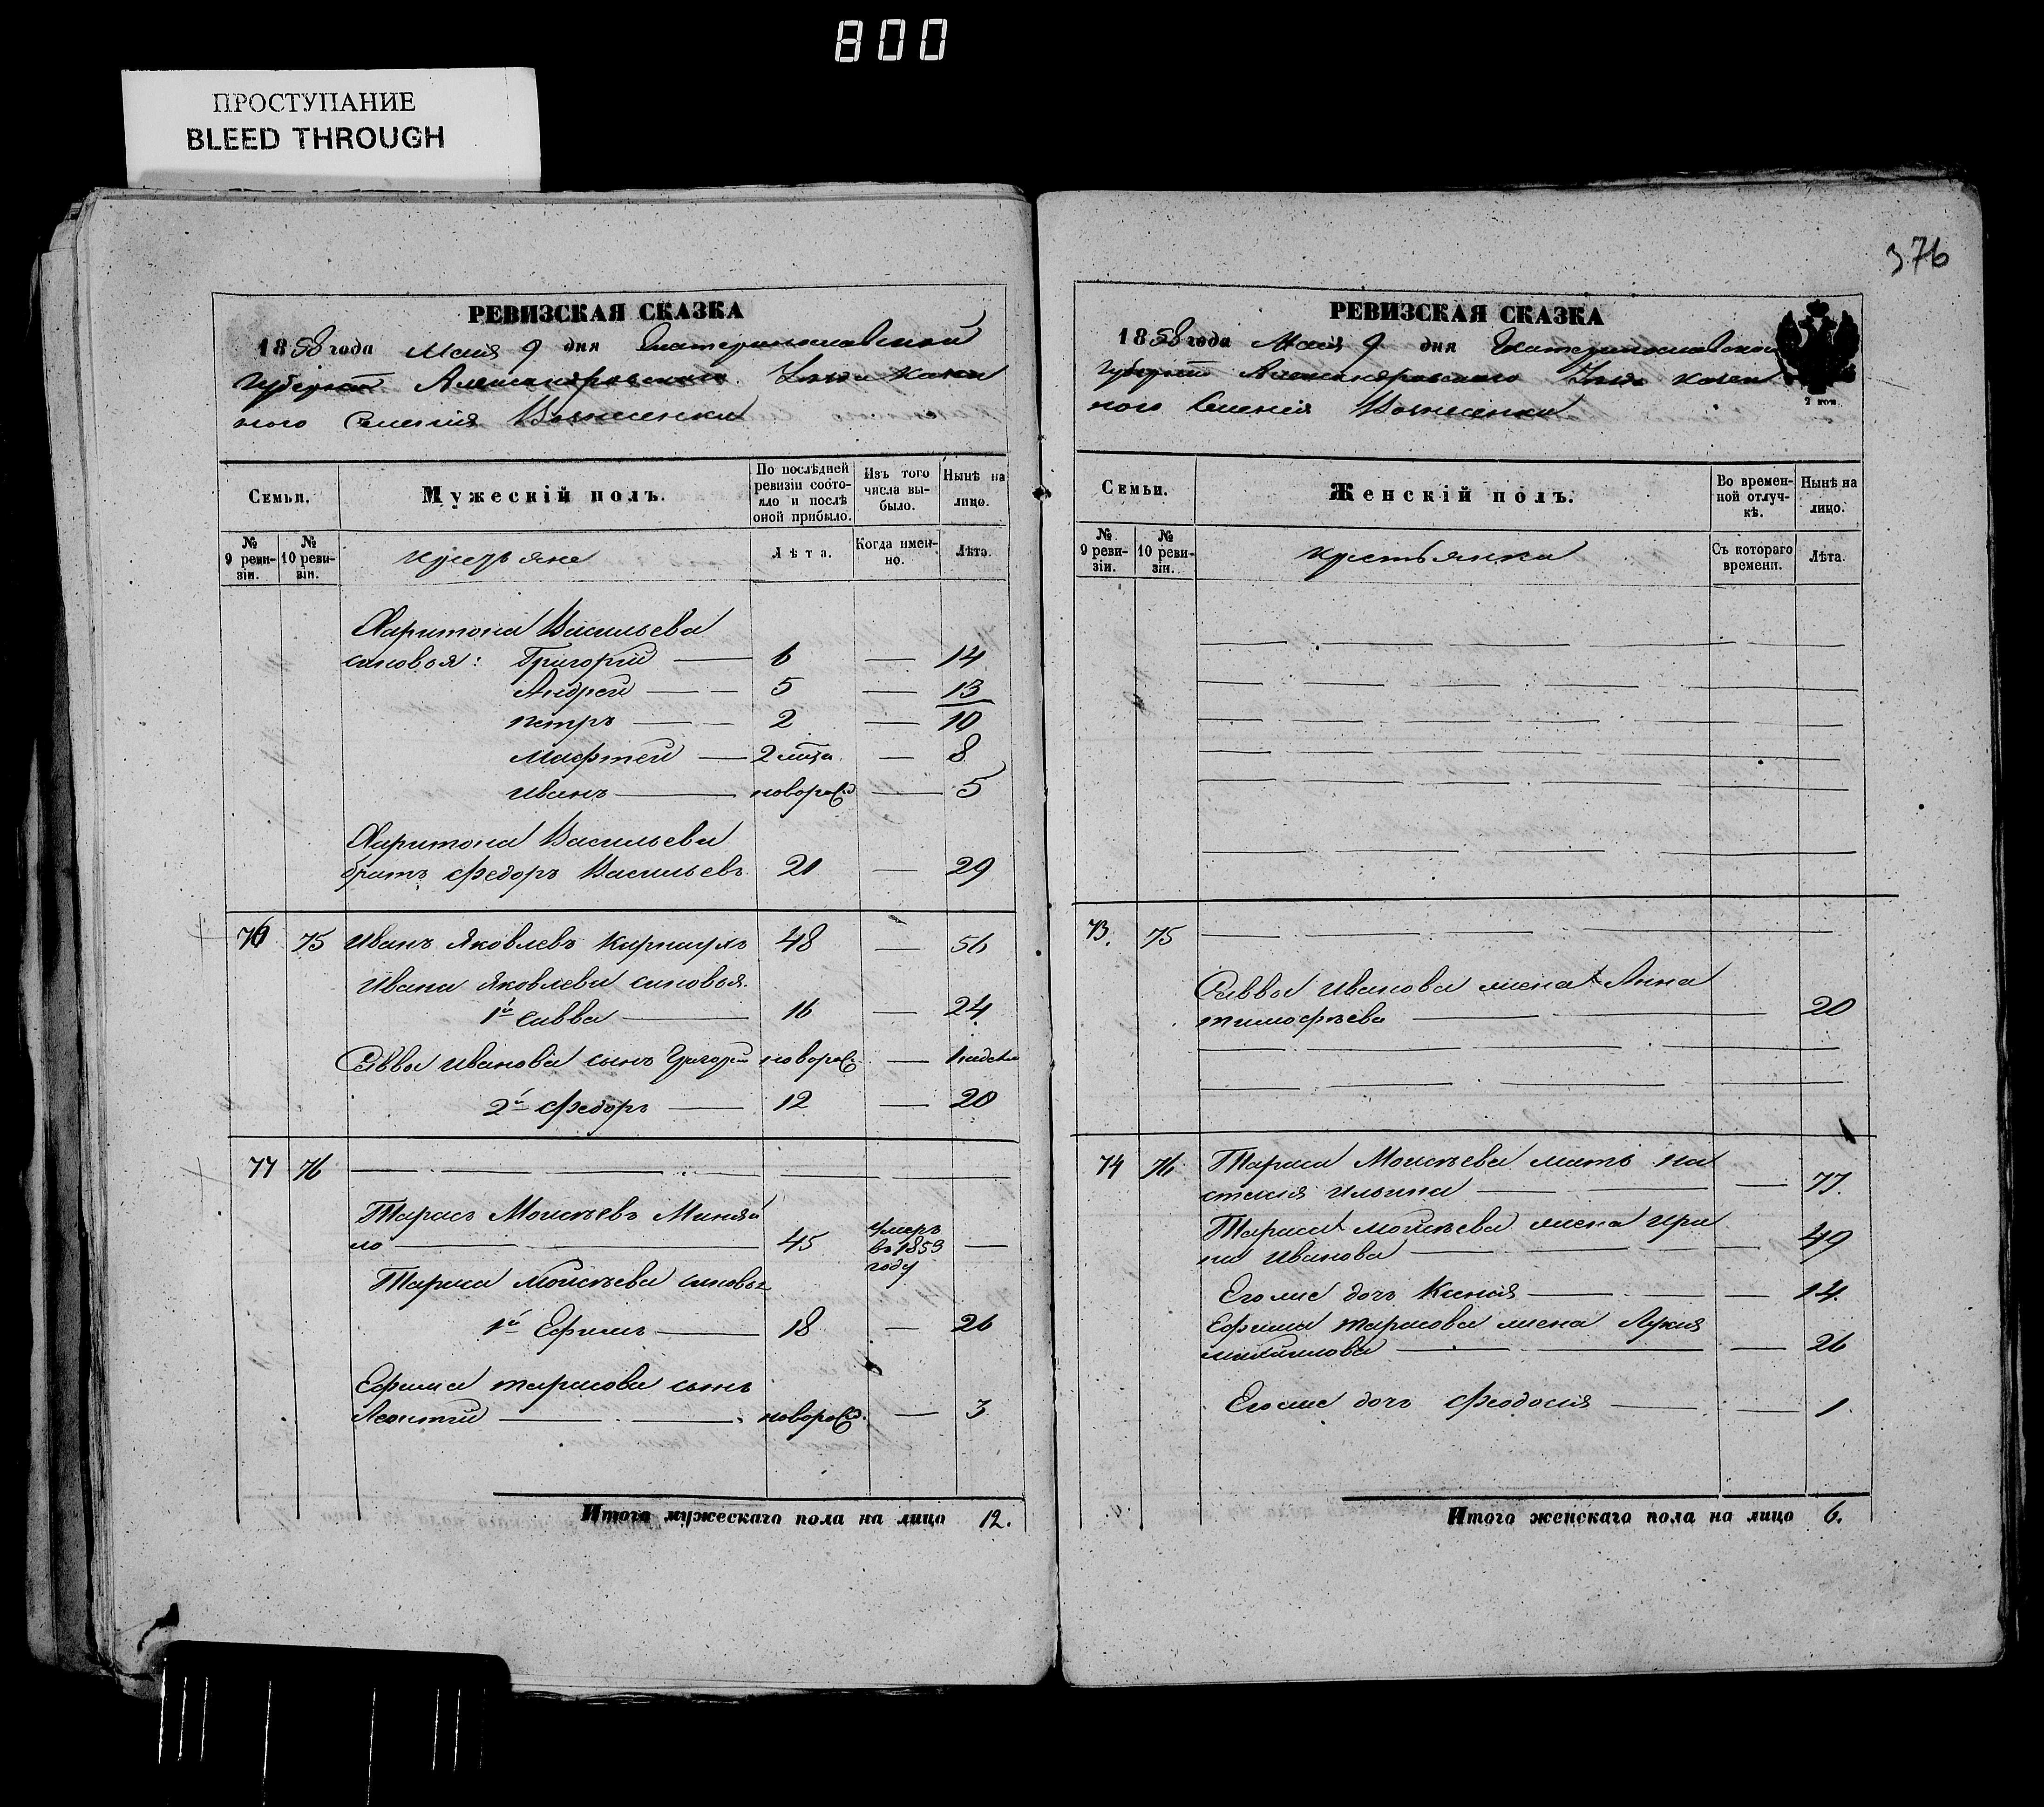 800
ПРОСТУПАНИЕ
BLEED THROUGH
РЕВИЗСКАЯ СКАЗКА
1858 года Маія 9 дня Екатеринославской
Губерніи Александровскаго Уѣзда Казен
ного Селенія Вознесенки
Семьи.
Мужескій полъ.
По послѣдней ревизіи состояло и послѣ оной прибыло.
Изъ того числа выбыло.
Нынѣ на лицо.
№ 9 ревизіи.
№ 10 ревизіи.
крестьяне
Лѣта.
Когда именно.
Лѣта.
Харитона Васильева
сыновья: Григорій 6 14
Андрей 5 13
Петръ 2 10
Мафтей 2 мѣся. 8
Иванъ новорож. 5
Харитона Васильева
братъ Федоръ Васильевъ 21 29
76 75 Иванъ Яковлевъ Карнаухъ 48 56
Ивана Яковлева сыновья.
1й Савва 16 24.
Саввы Иванова сынъ Григорій новорож. 1 неделя
2й Федоръ 12 20
77 76
Тарасъ Моисѣевъ Миняй
ло 45 Умеръ въ 1853 году
Тараса Моисѣева сыновья
1й Ефимъ 18 26
Ефима Тарасова сынъ
Леонтій новорож. 3
Итого мужескаго пола на лицо 12.
376
РЕВИЗСКАЯ СКАЗКА
1858 года Маія 9 дня Екатеринославской
Губерніи Александровскаго Уѣзда Казен
ного Селенія Вознесенки
2 коп
Семьи.
Женскій полъ.
Во временной отлучкѣ.
Нынѣ на лицо.
№ 9 ревизіи.
№ 10 ревизіи.
крестьянки
Съ котораго времени.
Лѣта.
73. 75
Саввы Иванова жена Анна
Тимофѣева 20
74 76 Тараса Моисѣева мать На
стасія Ильина 77.
Тараса Моисѣева жена Ири
на Иванова 49
Его же дочь Ксенія 14.
Ефима Тарасова жена Лукія
Михайлова 26
Его же дочь Феодосія 1
Итого женскаго пола на лицо 6.